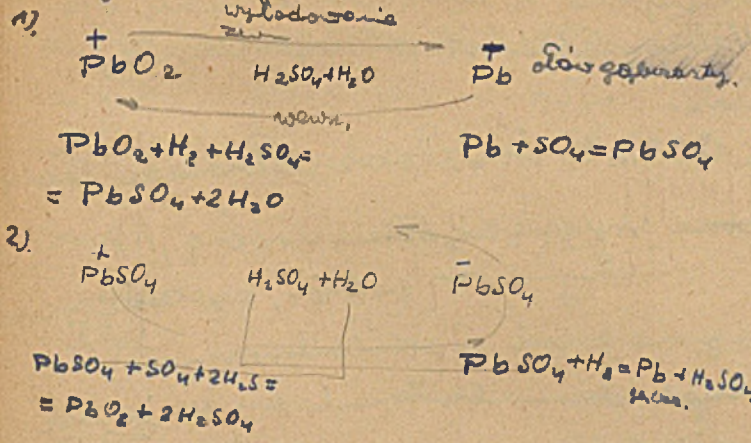 1).
wyładowanie
zewn.
+ PbO₂ H₂SO₄+H₂O Pb ołów gąbczasty.
wewn.
PbO₂+H₂+H₂SO₄= Pb+SO₄=PbSO₄
= PbSO₄+2H₂O
2).
+ PbSO₄ H₂SO₄+H₂O - PbSO₄
PbSO₄+SO₄+2H₂S= PbSO₄+H₂=Pb+H₂SO₄
= PbO₂+2H₂SO₄